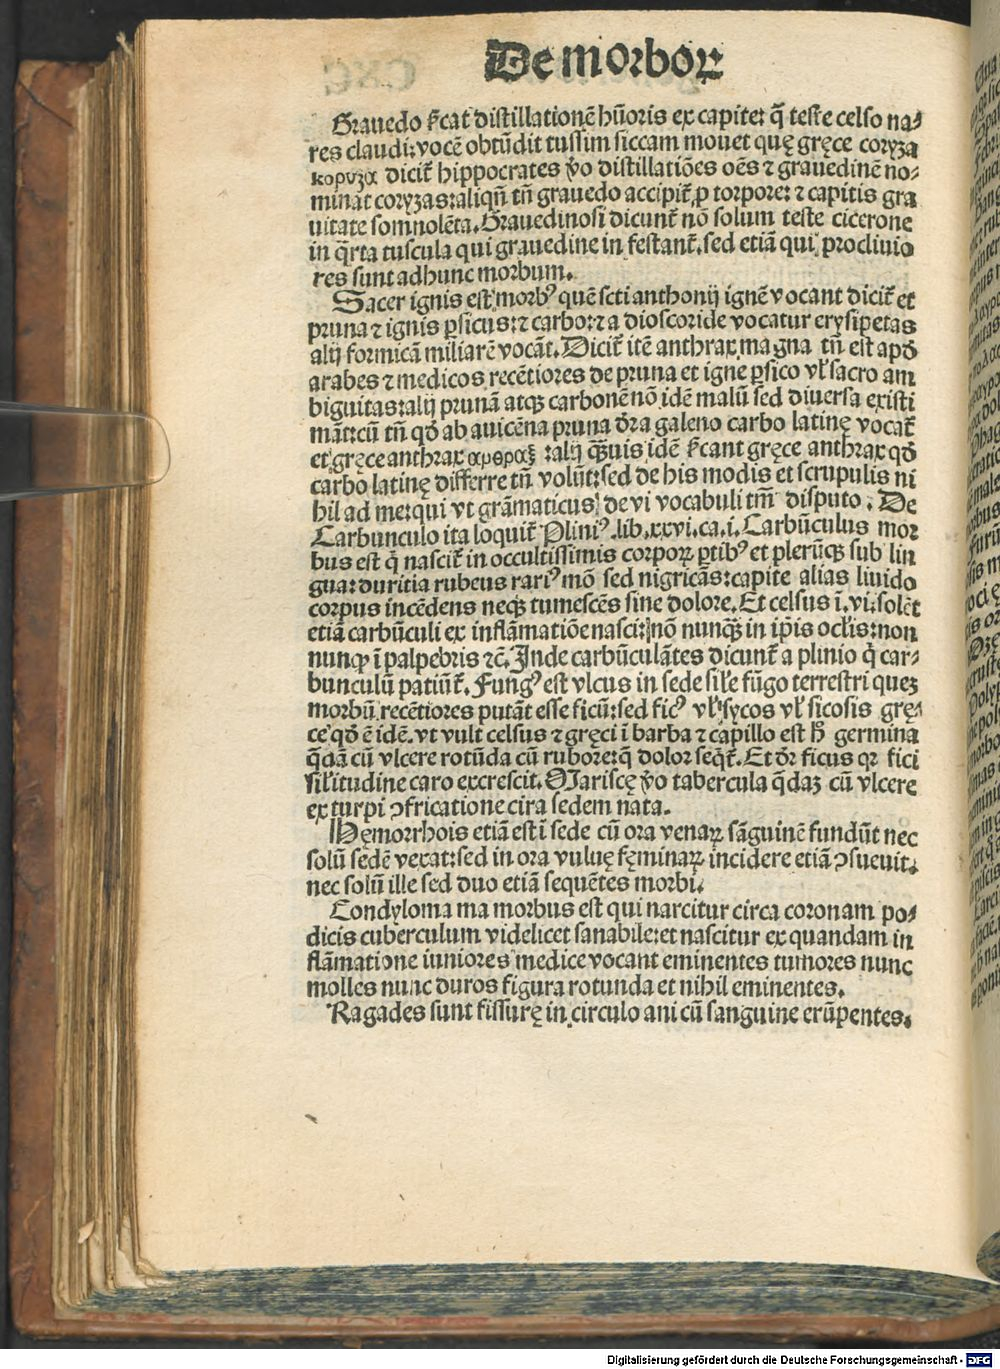 De morboꝝ
Grauedo s̄cat distillationē hūoris ex capite: q̄ teste celso na⸗
res claudi: vocē obtūdit tussim siccam mouet quę gręce coryza
κορυζα dicit̄ hippocrates v̄o distillatiōes oēs ⁊ grauedinē no⸗
minat coryzas: aliqn̄ tn̄ grauedo accipit̄ ꝓ torpore: ⁊ capitis gra
uitate somnolēta. Grauedinosi dicunt̄ nō solum teste cicerone
in q̄rta tuscula qui grauedine in festant̄. sed etiā qui procliuio
res sunt ad hunc morbum.
Sacer ignis est morbꝰ quē scti anthonij ignē vocant dicit̄ et
pruna ⁊ ignis ꝑsicus: ⁊ carbo: ⁊ a dioscoride vocatur erysipetas
alij formicā miliarē vocāt. Dicit̄ itē anthrax magna tn̄ est apd̄
arabes ⁊ medicos recētiores de pruna et igne ꝑsico vl̄ sacro am
biguitas: alij prunā atqꝫ carbonē nō idē malū sed diuersa existi
māt: cū tn̄ qd̄ ab auicēna pruna dr̄a galeno carbo latinę vocat̄
et gręce anthrax αρθραξ : alij qꝫuis idē s̄cant gręce anthrax qd̄
carbo latinę differre tn̄ volūt: sed de his modis et scrupulis ni
hil ad me: qui vt grāmaticus de vi vocabuli tm̄ disputo. De
Carbunculo ita loquit̄ Pliniꝰ .lib. xxvi. ca. i. Carbūculus mor
bus est q̄ nascit̄ in occultissimis corporꝝ ꝑtibꝰ et plerūqꝫ sub lin
gua: duritia rubeus rariꝰ mō sed nigricās: capite alias liuido
corpus incēdens neqꝫ tumescēs sine dolore. Et celsus ī. vi. solēt
etiā carbūculi ex inflāmatiōe nasci: nō nunqꝫ in ip̄is ocl̓is: non
nunqꝫ ī palpebris ⁊c̄. Inde carbūculātes dicunt̄ a plinio q̇ car⸗
bunculū patiūt̄. Fungꝰ est vlcus in sede sil̓e fūgo terrestri queꝫ
morbū recētiores putāt esse ficū: sed ficꝰ vl̄ sycos vl̄ sicosis grę⸗
ce qd̄ ē idē. vt vult celsus ⁊ gręci ī barba ⁊ capillo est h̄ germina
q̄dā cū vlcere rotūda cū rubore: q̄ dolor seq̄t̄. Et dr̄ ficus qꝛ fici
sil̓itudine caro excrescit. Mariscę v̄o tabercula q̄daꝫ cū vlcere
ex turpi ꝯfricatione cira sedem nata.
Hęmorrhois etiā est ī sede cū ora venaꝝ sāguinē fundūt nec
solū sedē vexat: sed in ora vuluę fęminaꝝ incidere etiā ꝯsueuit.
nec solū ille sed duo etiā sequētes morbi.
Condyloma ma morbus est qui narcitur circa coronam po⸗
dicis cuberculum videlicet sanabile: et nascitur ex quandam in
flāmatione iuniores medice vocant eminentes tumores nunc
molles nunc duros figura rotunda et nihil eminentes.
Ragades sunt fissurę in circulo ani cū sanguine erūpentes.
Digitalisierung gefördert durch die Deutsche Forschungsgemeinschaft - DFG